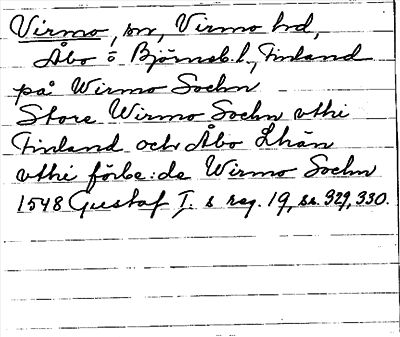 Virmo, sn, Virmo hd,
Åbo o Björneb. l., Finland
på Wirmo Sochn
Store Wirmo Sochn vthi
Finland och Åbo Lhän
vthi förbe:de Wirmo Sochn
1548 Gustaf I:s reg. 19, ss. 329, 330.